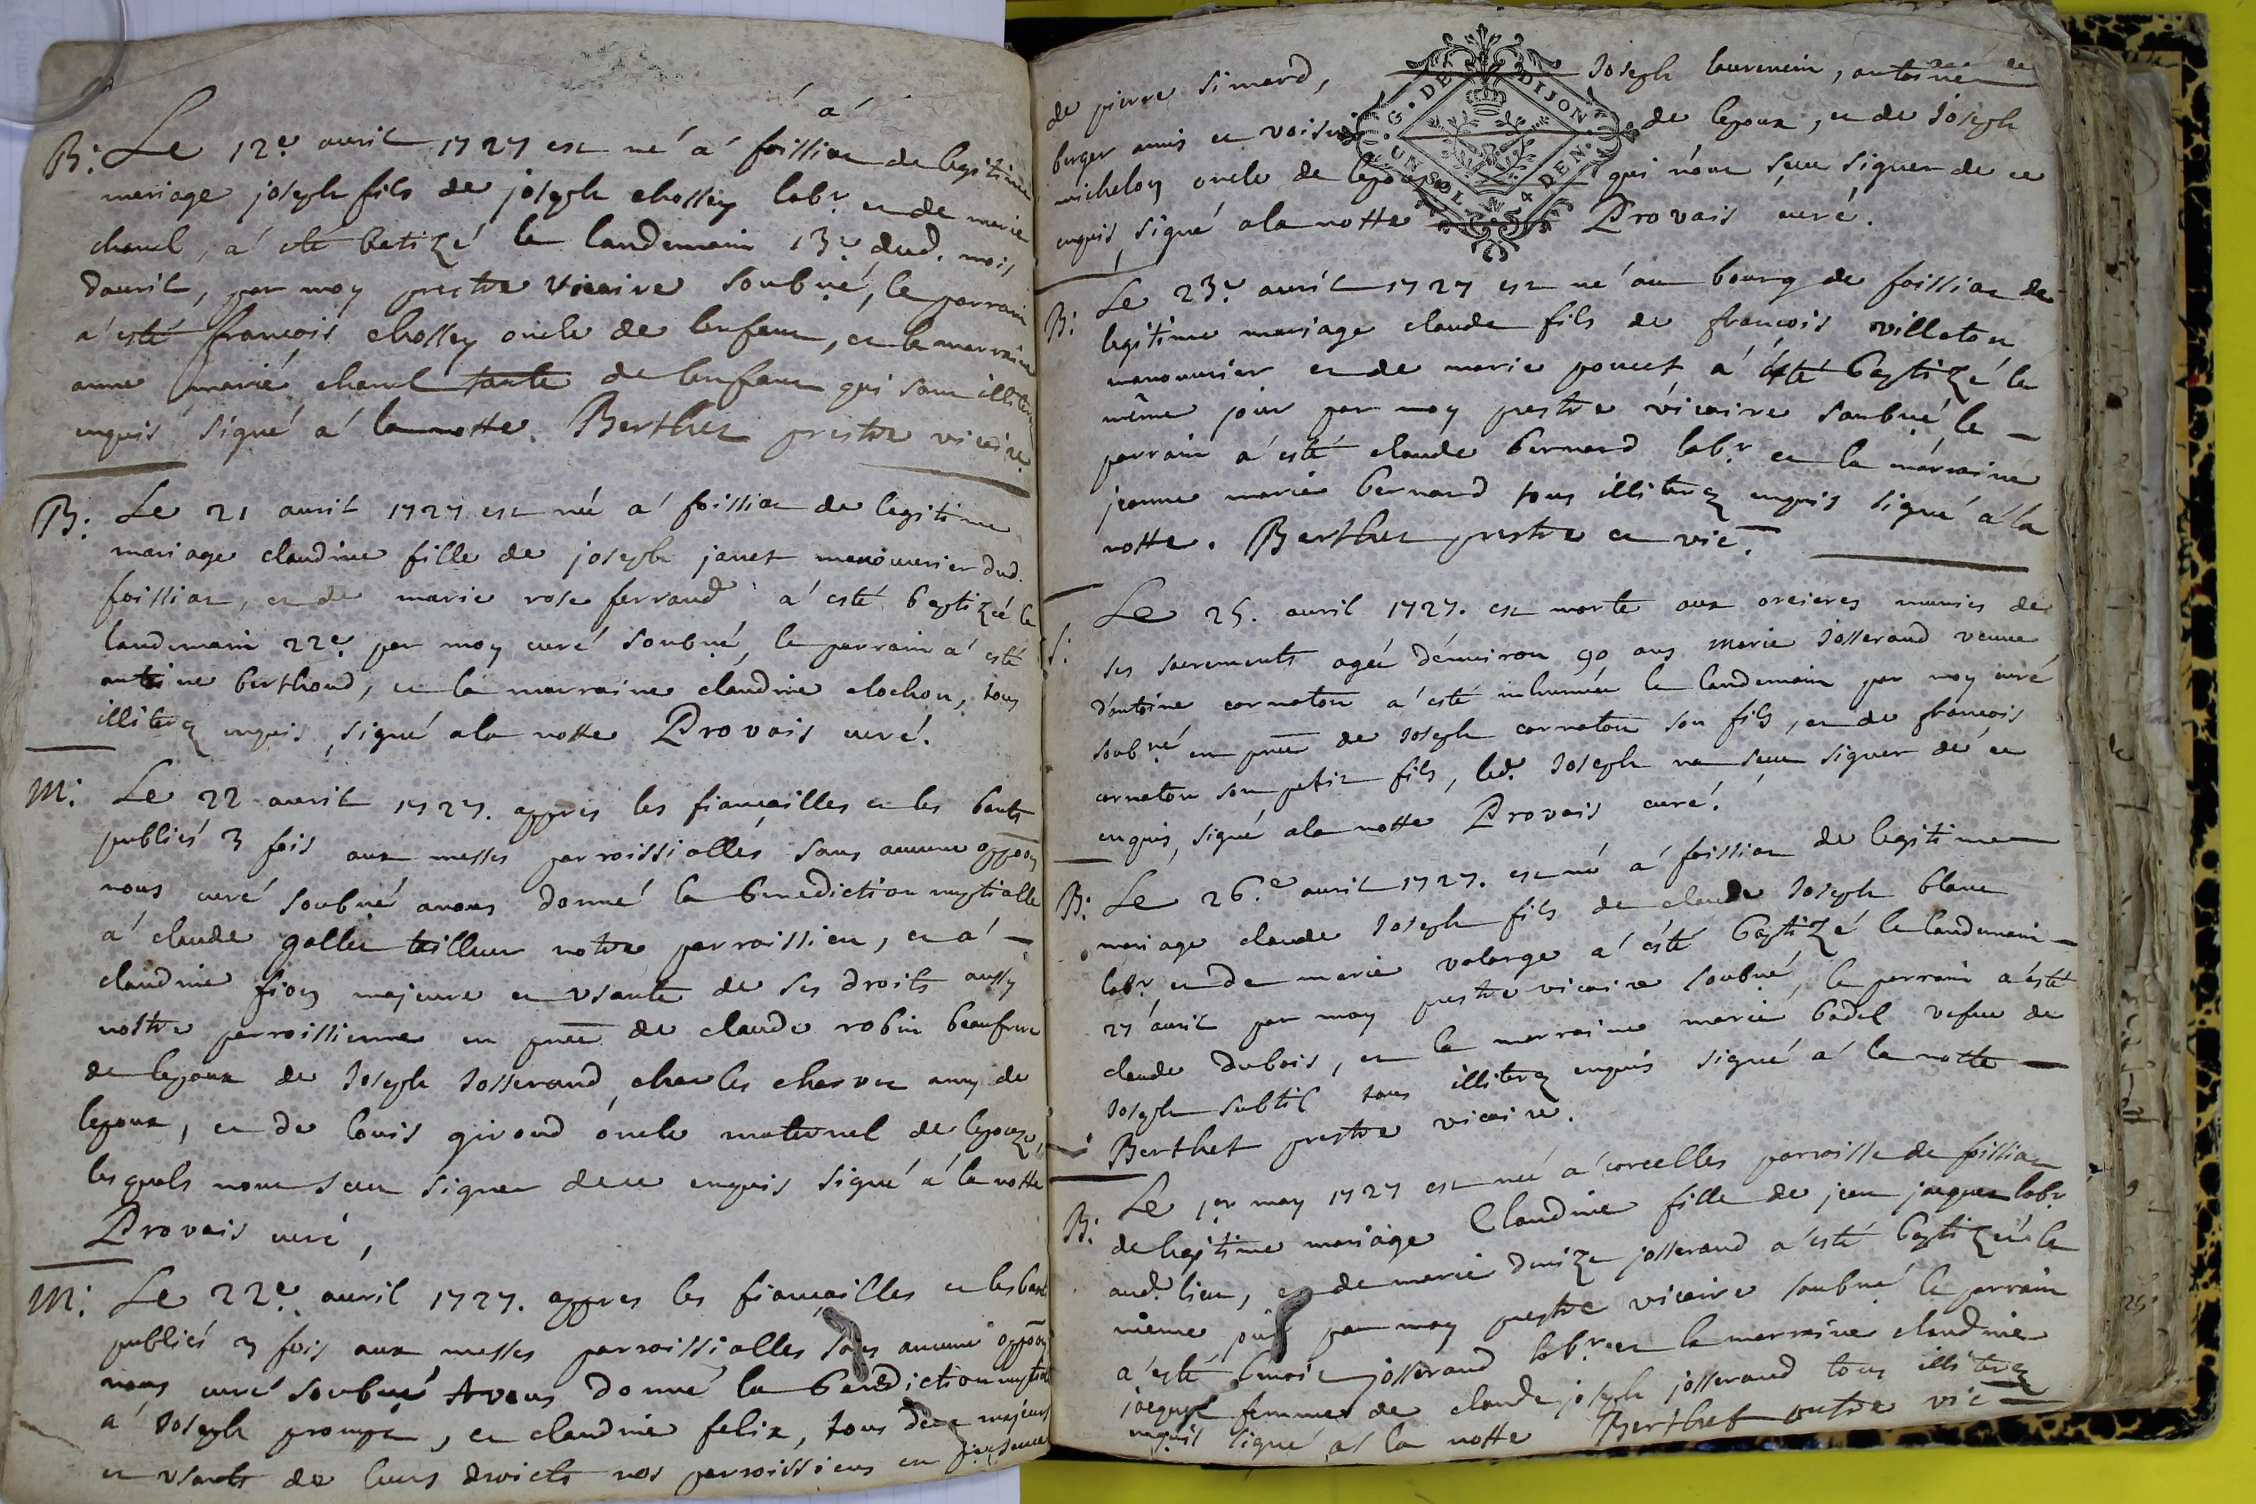 a
B: Le 12e avril 1727 est né a foissiat de legitime
mariage joseph fils de joseph chossey labr et de marie
charul, a eté batizé le landemain 13e dud. mois
davril, par moy prestre vicaire soubné, le parrain
a esté francois chossey oncle de lenfant, et la marraine
anne marie charul tante de lenfant qui sont illiterez
enquis signé a la notte. Berthet prestre vicaire
B: Le 21 avril 1727 est née a foissiat de legitime
mariage claudine fille de joseph janet manouvrier dud.
foissiat, et de marie rose ferraud a esté baptizée le
landemain 22e par moy curé soubné, le parrain a esté
antoine berthoud, et la marraine claudine clochon, tous
illiterez enquis, signé a la notte Provais curé.
M: Le 22 avril 1727. appres les fiancailles et les bants
publiés 3 fois aux messes parroissialles sans aucune oppoon
nous curé soubné avons donné la benediction nuptialle
a claude gallet tailleur notre parroissien, et a
claudine fion majeure et usante de ses droits aussy
nostre parroissienne en pnce de claude robin beaufrere
de lepoux de Joseph Josserand, charles charvet amy de
lepoux, et de louis giroud oncle maternel de lepouze,
lesquels nont sceu signer de ce enquis signé a la notte
Provais curé,
M: Le 22e avril 1727. appres les fiancailles et les bants
publiés 3 fois aux messes parroissialles sans aucune oppoon
nous curé soubné Avons donné la benediction nuptialle
a Joseph prompt, et claudine felix, tous deux majeurs
et usants de leurs droicts nos parroissiens en presence
de pierre simard, Joseph laurencin, antoine
berger amis et voisins de lepoux, et de Joseph
michelon oncle de lepouze qui nont sceu signer de ce
enquis, signé a la notte Provais curé.
G. DE DIJON
UN SOL 4 DEN.
B: Le 23e avril 1727 est né au bourg de foissiat de
legitime mariage claude fils de francois villeton
manouvrier et de marie poncet a esté baptizé le
même jour par moy prestre vicaire soubné le
parrain a esté claude bernard labr et la marraine
jeanne marie bernard tous illiterez enquis signé a la
notte. Berthet prestre et vic.
S: Le 25. avril 1727. est morte aux orcieres munies de
ses sacrements agée denviron 90 ans marie Josserand veuve
d'antoine carnaton a esté inhumée le landemain par moy curé
soubné en pnce de Joseph carnaton son fils, et de francois
carnaton son petit fils, led. Joseph na sceu signer de ce
enquis, signé a la notte Provais curé.
B: Le 26.e avril 1727. est né a foissiat de legitime
mariage claude Joseph fils de claude Joseph blanc
labr et de marie valarge a esté baptizé le landemain
27 avril par moy prestre vicaire soubné, le parrain a esté
claude dubois, et la marraine marie badel vefve de
Joseph subtil tous illiterez enquis signé a la notte
Berthet prestre vicaire.
B: Le 1er may 1727 est née a corcelles paroisse de foissiat
de legitime mariage Claudine fille de jean jacquet labr
aud. lieu, et de marie denize josserand a esté baptizée le
même jour par moy prestre vicaire soubné le parrain
a esté josserand labr et la marraine claudine
jacquet femme de claude joseph josserand tous illiterez
enquis signé a la notte Berthet prestre vic